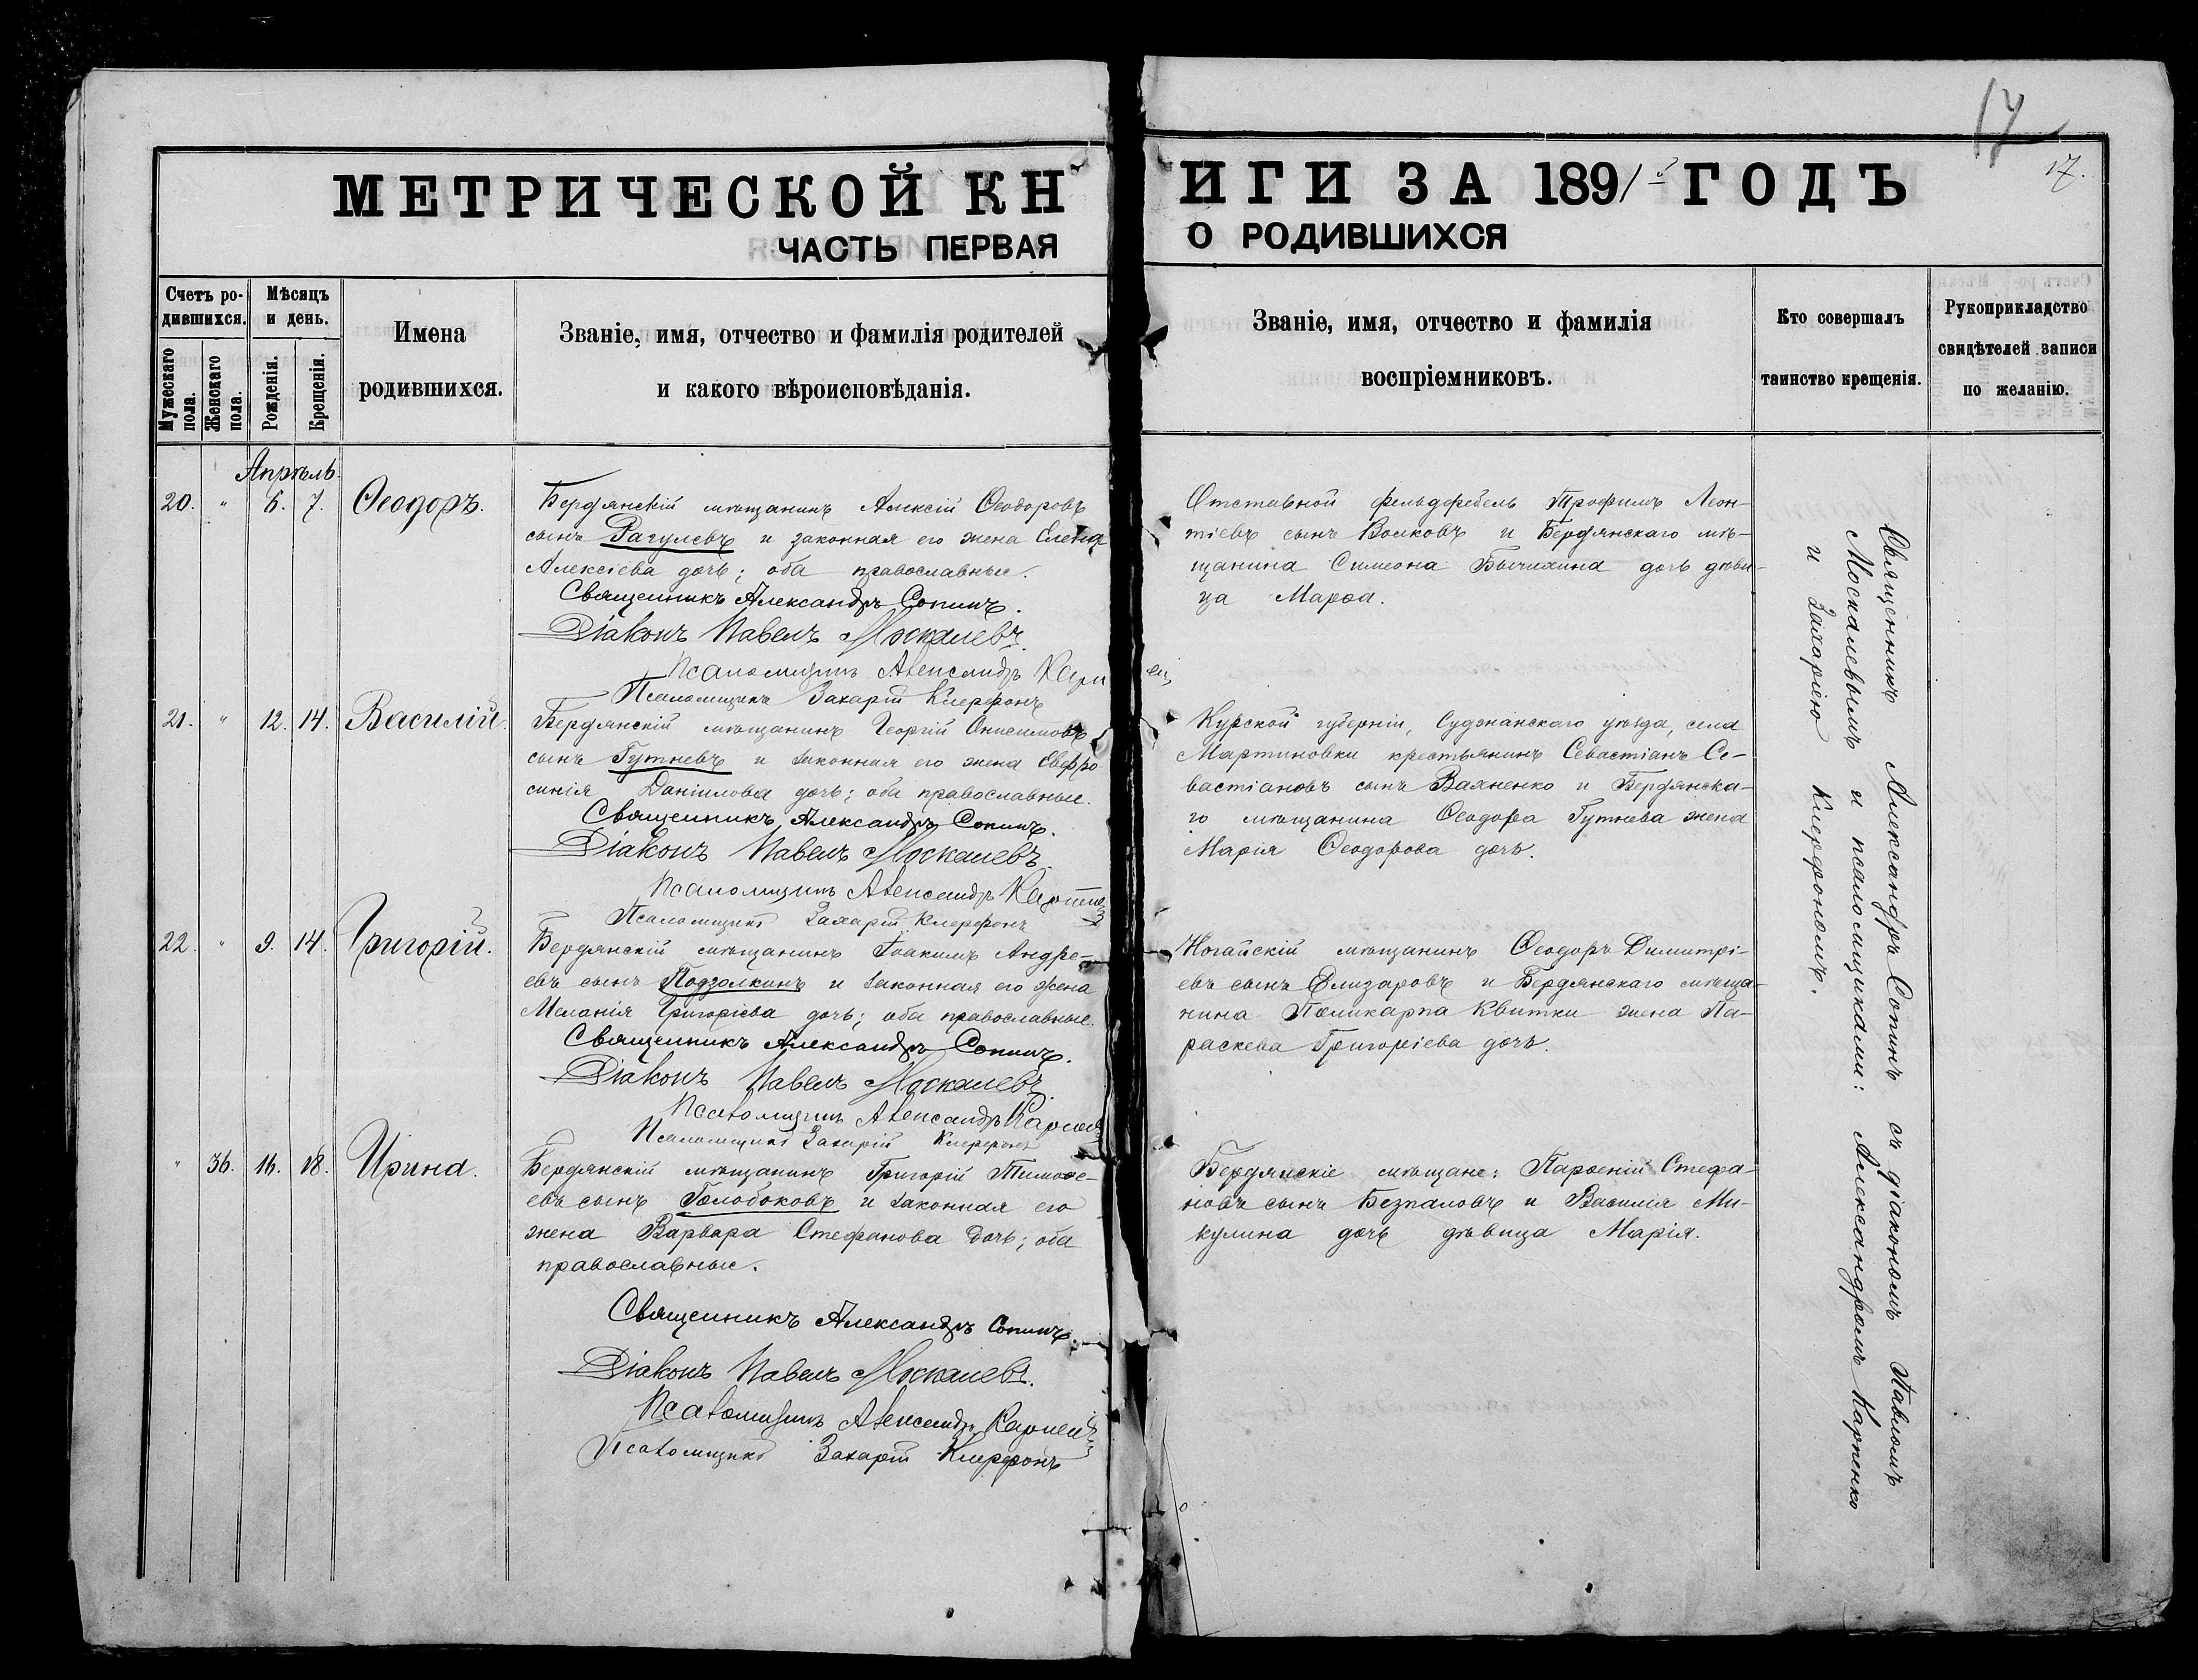 17
17.
МЕТРИЧЕСКОЙ КНИГИ ЗА 1891й ГОДЪ
ЧАСТЬ ПЕРВАЯ О РОДИВШИХСЯ
Счетъ ро-
дившихся.
Мужескаго пола.
Женскаго пола.
Мѣсяцъ
и день.
Рожденія.
Крещенія.
Имена
родившихся.
Званіе, имя, отчество и фамилія родителей
и какого вѣроисповѣданія.
Званіе, имя, отчество и фамилія
воспріемниковъ.
Кто совершалъ
таинство крещенія.
Рукоприкладство
свидѣтелей записи
по желанію.
Апрѣль.
20. " 6. 7. Ѳеодоръ.
Бердянскій мѣщанинъ Алексій Ѳеодоровъ
сынъ Рагулевъ и законная его жена Елена
Алексіева дочь; оба православные.
Священникъ Александръ Сопинъ.
Діаконъ Павелъ Москалевъ.
Псаломщикъ Александръ Карпен
Псаломщикъ Захарій Клерфонъ
Отставной фельдфебель Трофимъ Леон-
тіевъ сынъ Волковъ и Бердянскаго мѣ-
щанина Симеона Бычихина дочь дѣви-
ца Марѳа.
21. " 12. 14. Василій.
Бердянскій мѣщанинъ Георгій Онисимовъ
сынъ Гутневъ и законная его жена Евфро
синія Даніилова дочь; оба православные.
Священникъ Александръ Сопинъ.
Діаконъ Павелъ Москалевъ.
Псаломщикъ Александръ
Псаломщикъ Захарій Клерфонъ
Курской губерніи, Суджанскаго уѣзда, села
Мартиновки крестьянинъ Севастіанъ Се-
вастіановъ сынъ Вахненко и Бердянска-
го мѣщанина Ѳеодора Гутнева жена
Марія Ѳеодорова дочь.
22. " 9. 14. Григорій.
Бердянскій мѣщанинъ Іоакимъ Андре-
евъ сынъ Подзолкинъ и законная его жена
Меланія Григоріева дочь; оба православные.
Священникъ Александръ Сопинъ.
Діаконъ Павелъ Москалевъ.
Псаломщикъ Александръ
Псаломщикъ Захарій Клерфонъ
Ногайскій мѣщанинъ Ѳеодоръ Димитрі-
евъ сынъ Елизаровъ и Бердянскаго мѣща-
нина Поликарпа Квитки жена Па-
раскева Григоріева дочь.
" 36. 16. 18. Ирина.
Бердянскій мѣщанинъ Григорій Тимоѳе-
евъ сынъ Голобоковъ и законная его
жена Варвара Стефанова дочь; оба
православные.
Священникъ Александръ Сопинъ.
Діаконъ Павелъ Москалевъ.
Псаломщикъ Александръ
Псаломщикъ Захарій Клерфонъ
Бердянскіе мѣщане: Парѳеній Стефа-
новъ сынъ Безпаловъ и Василія Ми-
кулина дочь дѣвица Марія.
Священникъ Александръ Сопинъ съ діакономъ Павломъ
Москалевымъ и псаломщиками: Александромъ Карпенко
и Захаріею Клерфономъ.